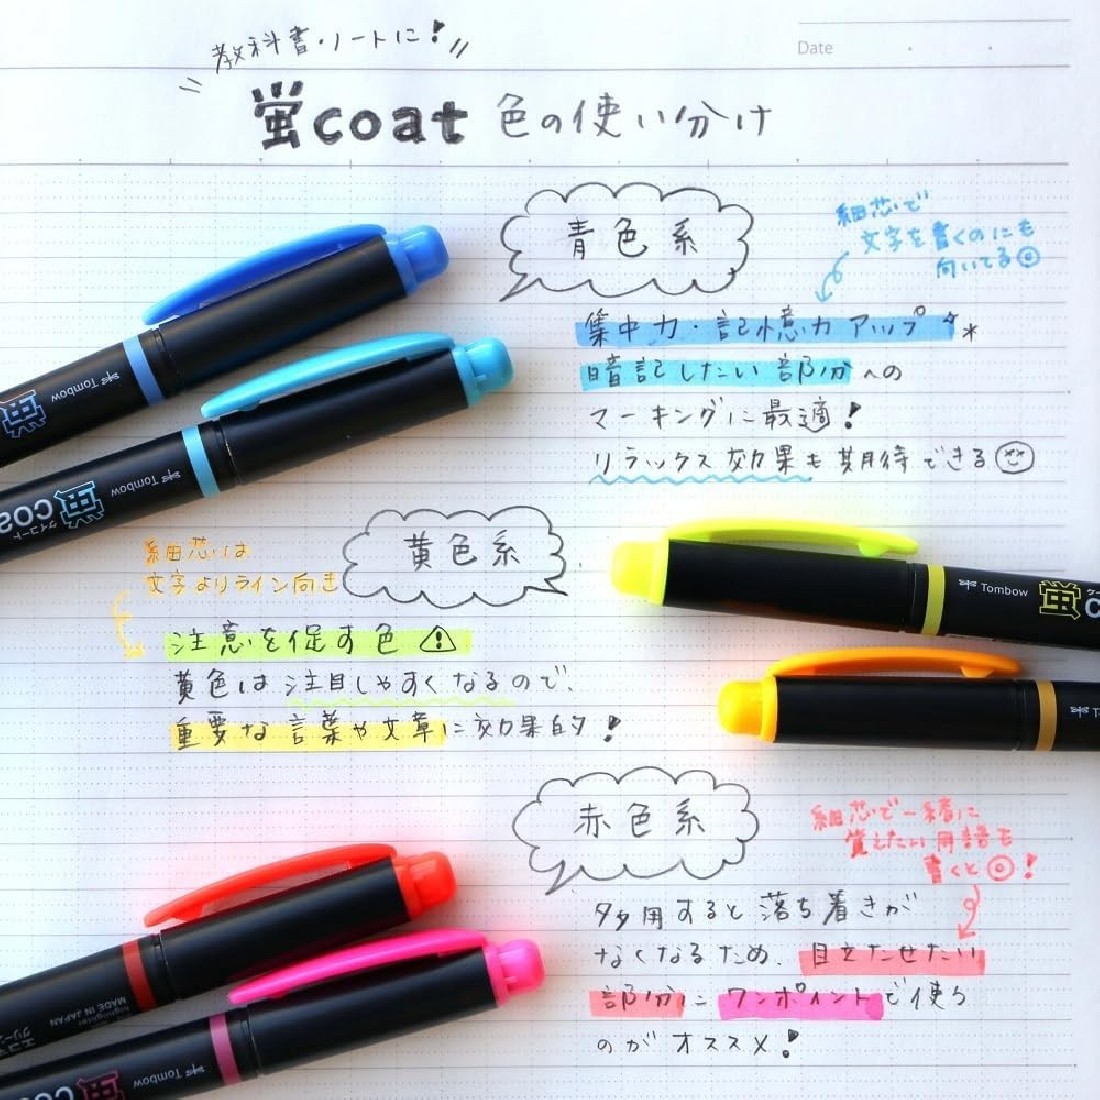 教科書・ノートに!
Date
蛍coat 色の使い分け
青色系
細芯で
文字を書くのにも
向いてる◎
集中力・記憶力アップ
暗記したい部分への
マーキングに最適!
リラックス効果も期待できる
Tombow
蛍
Tombow
蛍 coa
ケイコート
黄色系
細芯は
文字よりライン向き
注意を促す色
黄色は注目しやすくなるので、
重要な言葉や文章に効果的!
Tombow
蛍
赤色系
細芯で一緒に
覚えたい用語も
書くと◎!
多用すると落ち着きが
なくなるため、目立たせたい
部分にワンポイントで使う
のがオススメ!
MADE IN JAPAN
highlighter
Tombow
蛍 co